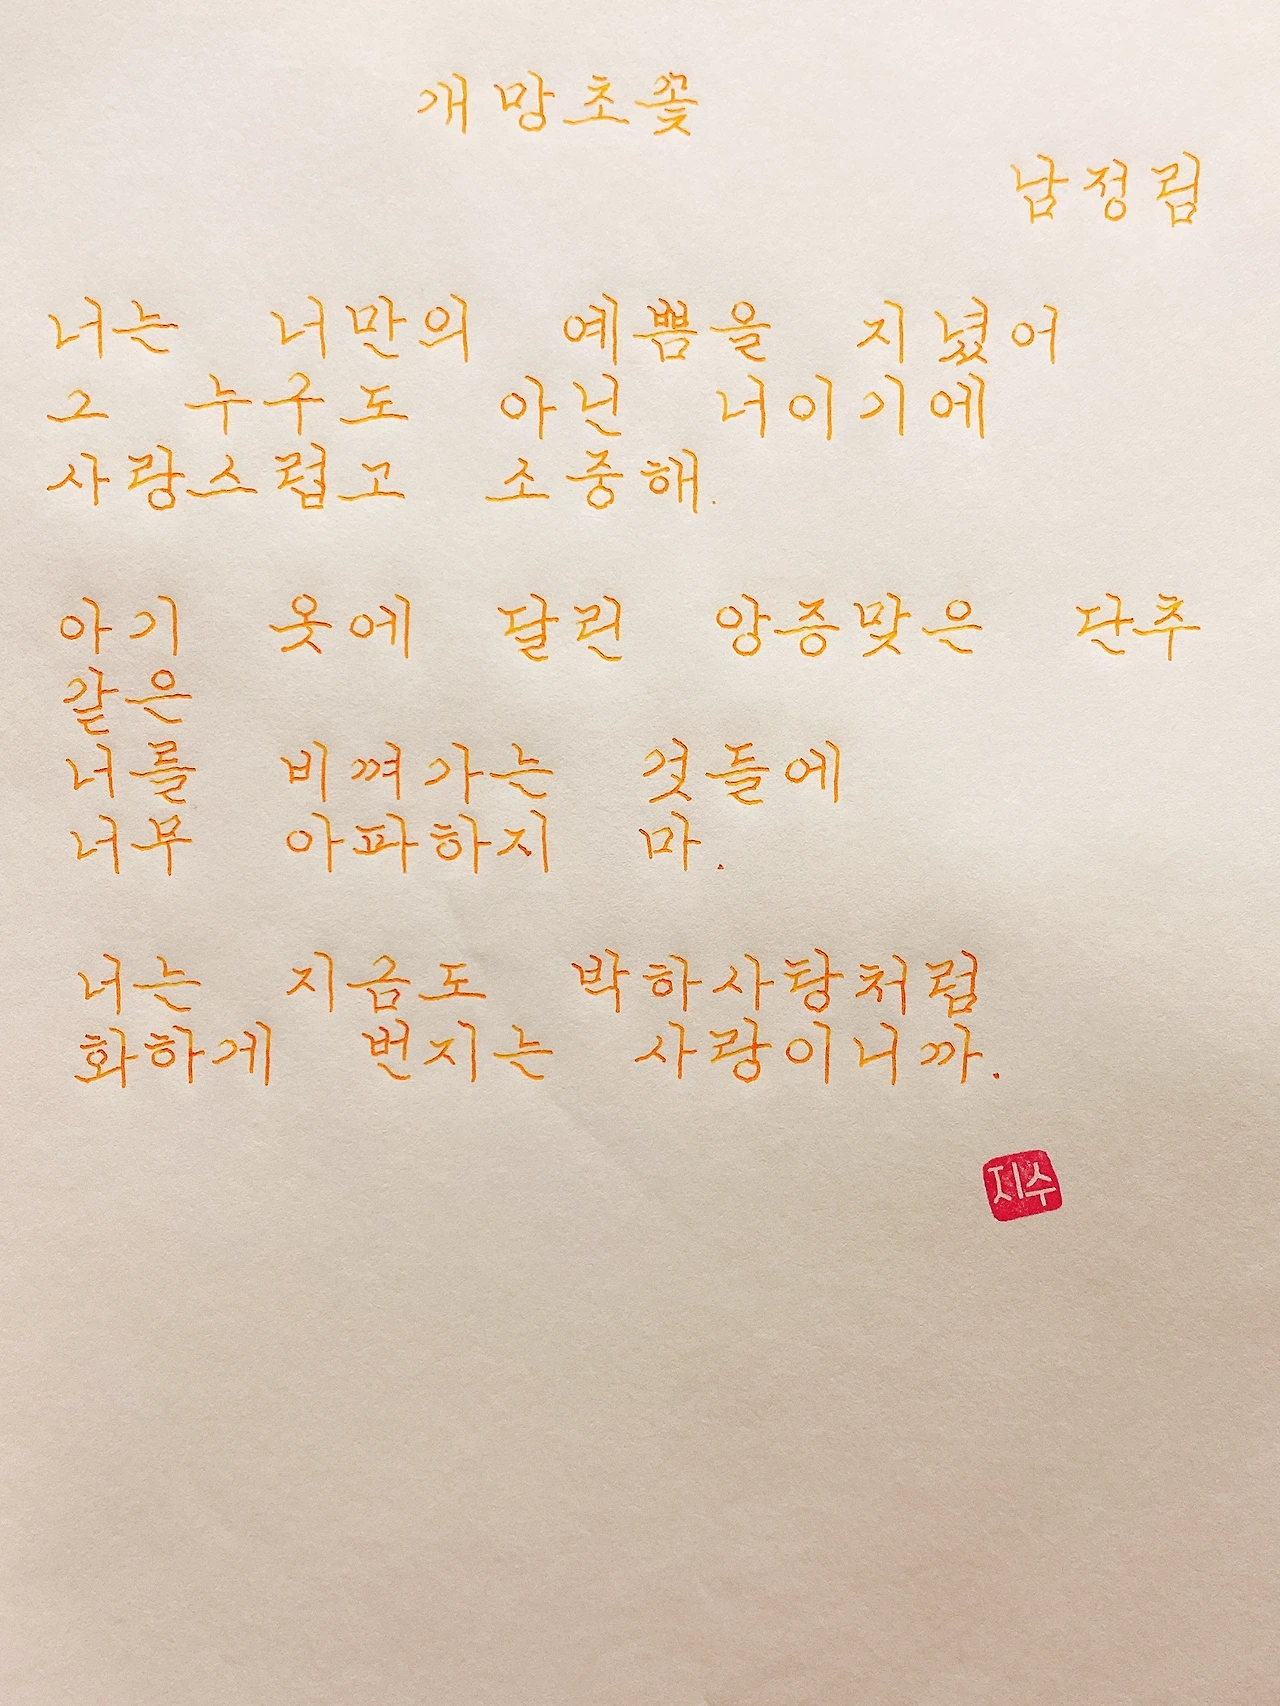 개망초꽃
남정림
너는 너만의 예쁨을 지녔어
그 누구도 아닌 너이기에
사랑스럽고 소중해.
아기 옷에 달린 앙증맞은 단추
같은
너를 비껴가는 것들에
너무 아파하지 마.
너는 지금도 박하사탕처럼
화하게 번지는 사랑이니까.
지수